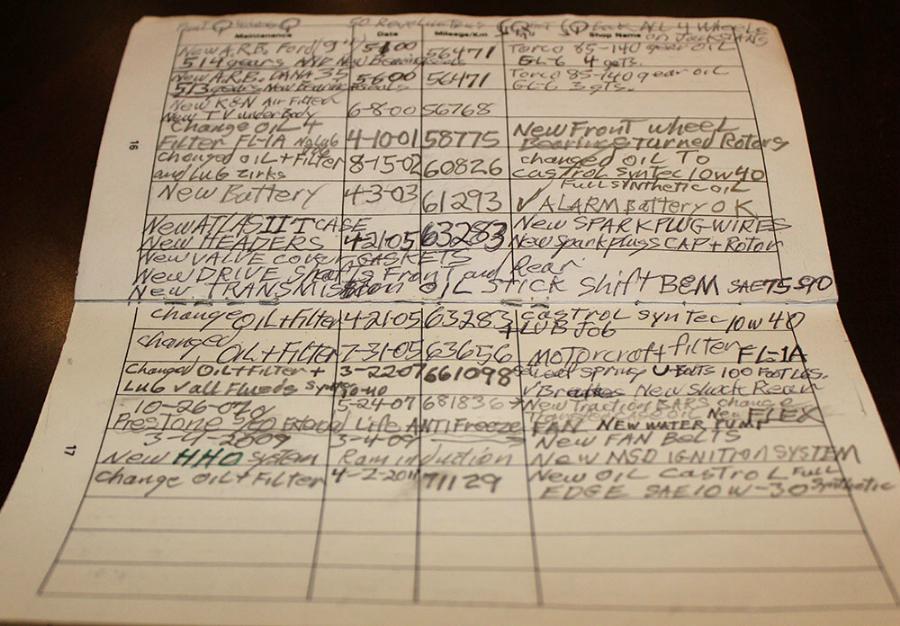 50 Revolutions ALL 4 Wheels
on JackStANDS
Maintenance Date Mileage/Km Shop Name
New A.R.B. Ford 9" 5-1-00 56471 Torco 85-140 gear OIL
514 gears AND New Bearings GL-6 4 qts.
New A.R.B. DANA 35 5-6-00 56471 Torco 85-140 gear oil
513 gears New Bearings Seals GL-6 3 qts.
New K&N Air Filter
New TV underBody 6-8-00 56768
Change OIL +
Filter FL-1A 4-10-01 58775 New Front wheel
Bearing + Turned Rotors
changed OIL + Filter 8-15-02 60826 changed OIL TO
and Lub zirks casTROL synTec 10w40
Full SYNTHETIC OIL
New Battery 4-3-03 61293 ✓ ALARM Battery OK
New ATLAS II T CASE New SPARK PLUG WIRES
New HEADERS 4-21-05 63283 New sparkplugs CAP + Rotor
New VALVE cover GASKETS
New DRIVE Shafts Front and Rear
New TRANSMISSION OIL STICK Shift B&M SAE 75-90
change OIL + Filter 4-21-05 63283 casTROL synTec 10w40
+ LUB Job
changed
OIL + Filter 7-31-05 63656 MOTORCRAFT filter FL-1A
Changed OIL + Filter + 3-22-07 661098 spring U-Bolts 100 FOOT Lbs.
Lub ✓ all Fluids 10-40 ✓ Brakes New Shock Rear
10-26-07 5-24-07 681836 New Traction BARS change
New FLEX
PresTone Extended Life ANTIFreeze FAN NEW WATER PUMP
3-4-2009 3-4-09 New FAN BelTs
New HHO system Ram induction New MSD IGNITION SYSTEM
Change OIL + Filter 4-2-2011 71129 New OIL CasTROL Full
EDGE SAE 10W-30 Synthetic
16
17